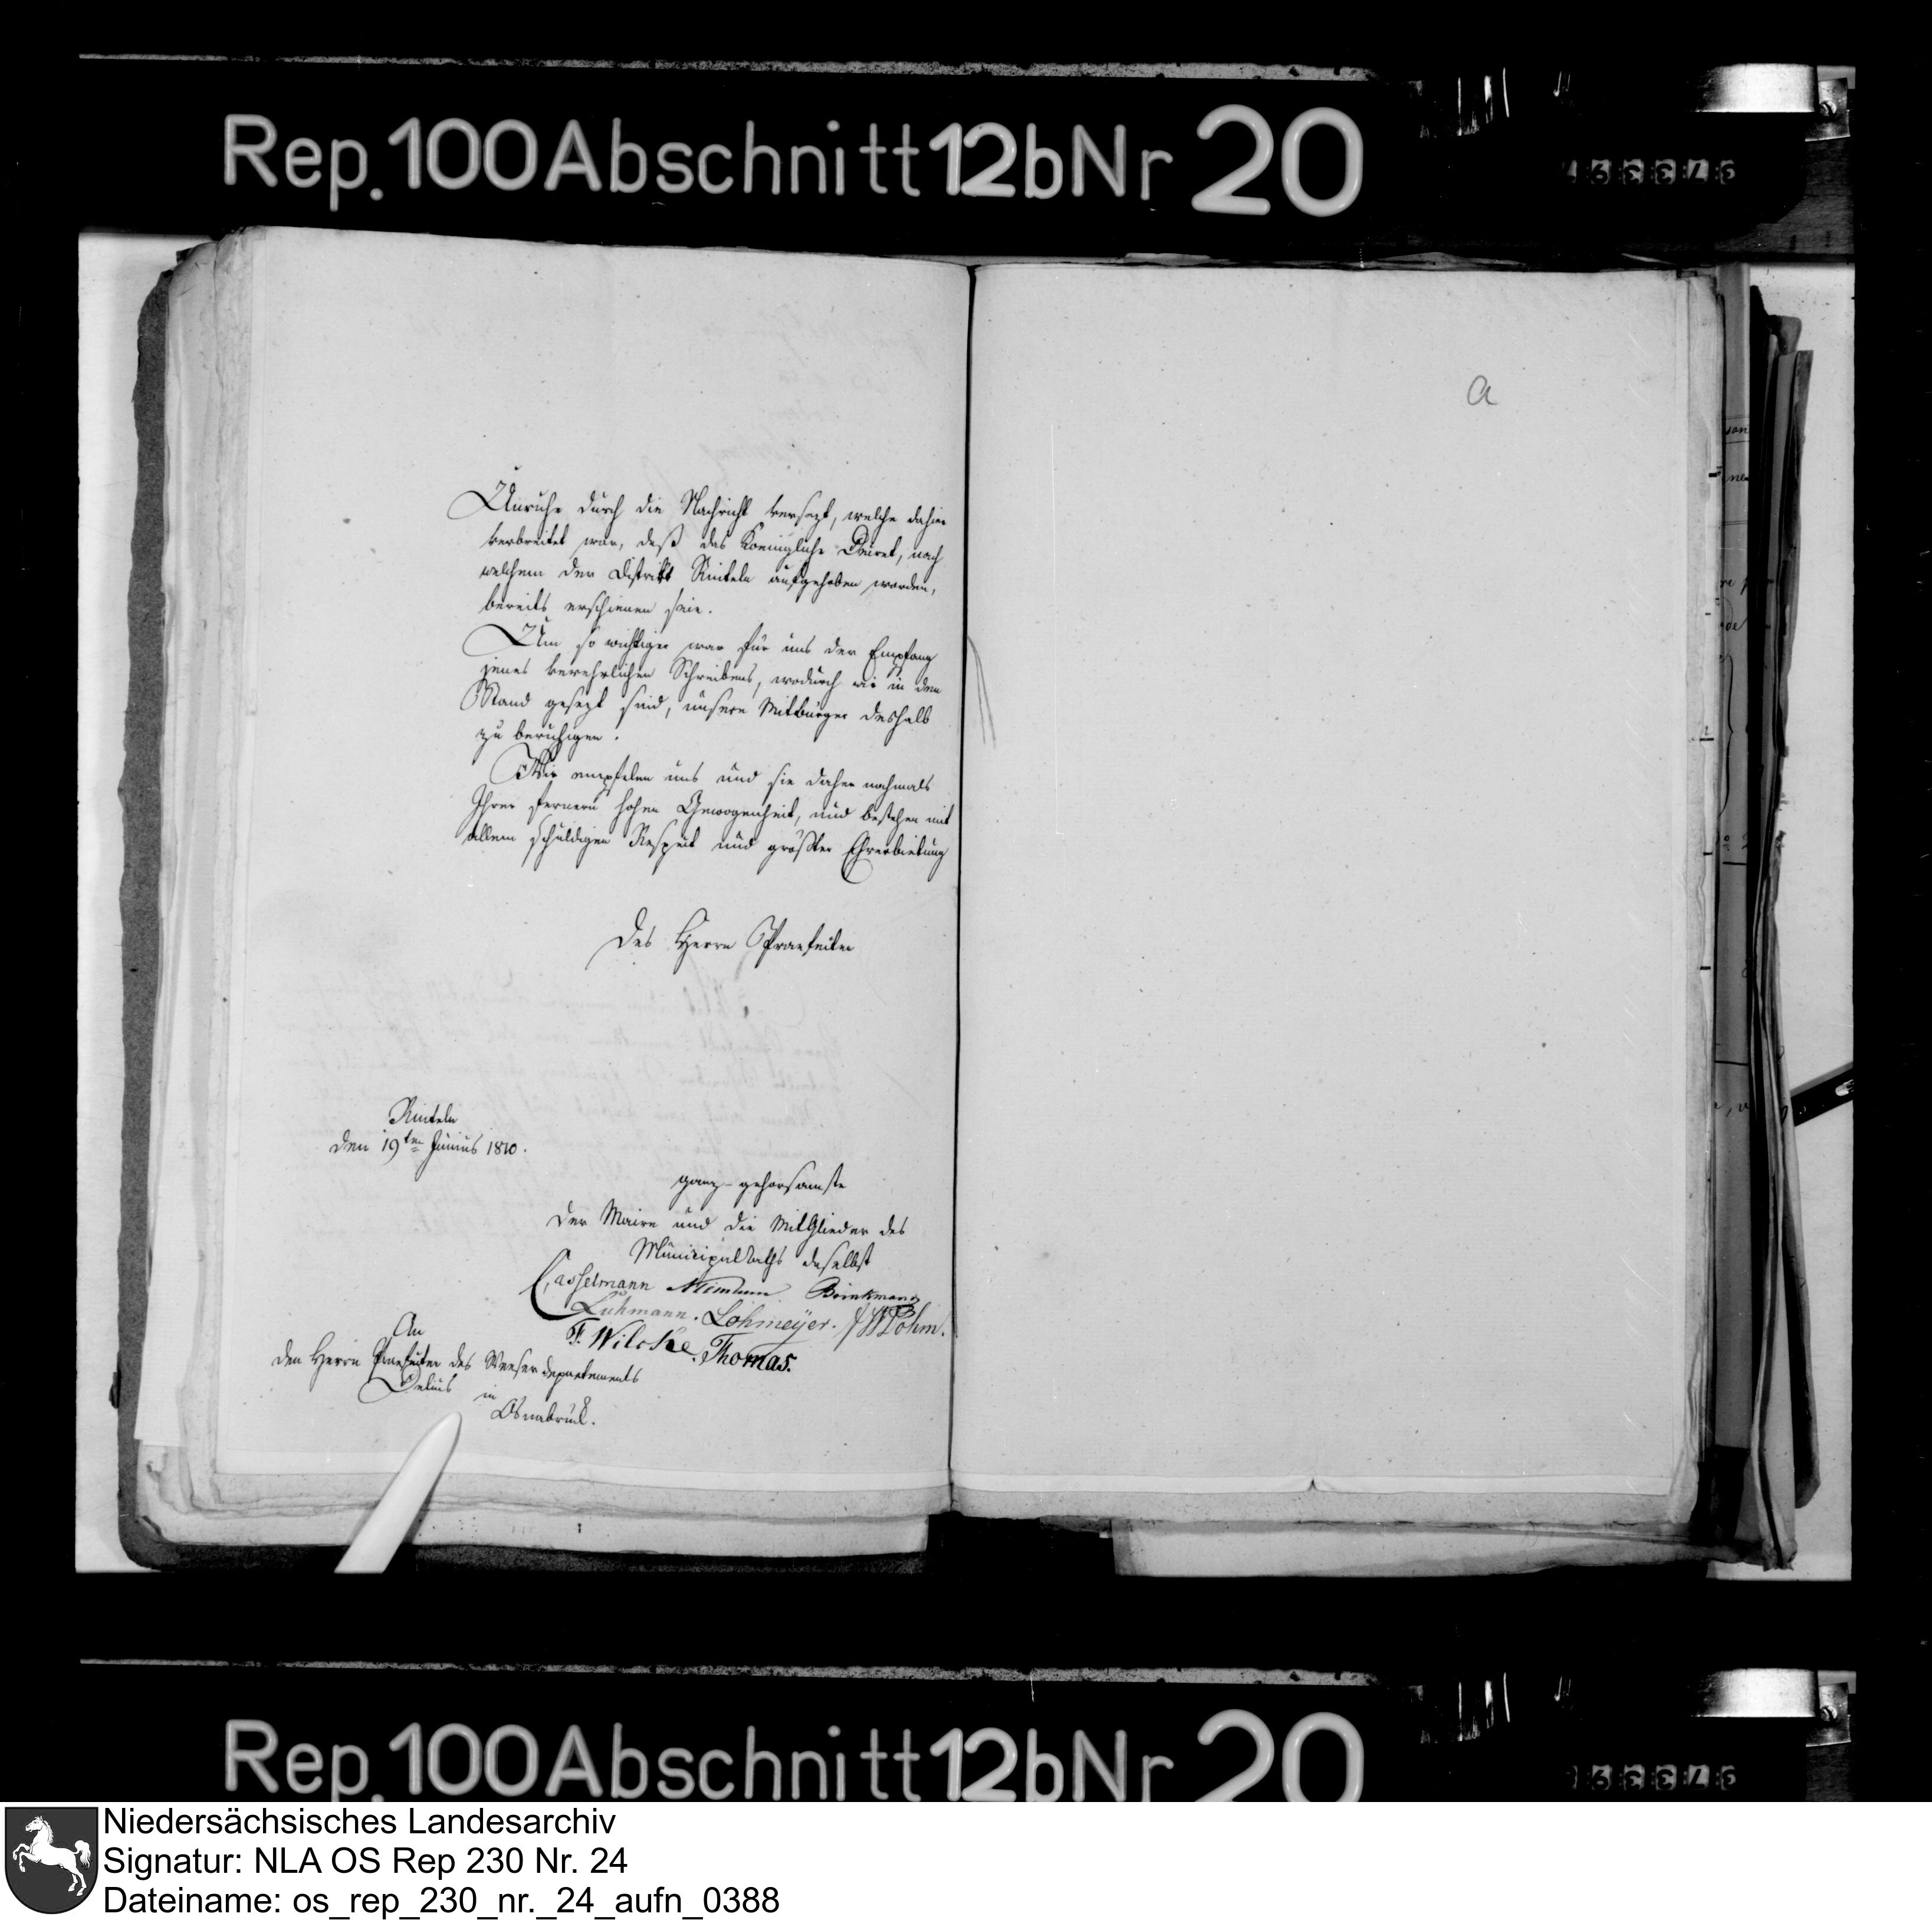 Rep. 100 Abschnitt 12b Nr 20
a
Unruhe durch die Nachricht versezt, welche dahier
verbreitet war, daß das Koenigliche Decret, nach
welchem der District Rinteln aufgehoben worden,
bereits erschienen seie.
Um so wichtiger war für uns der Empfang
jenes verehrlichen Schreibens, wodurch wir in den
Stand gesezt sind, unsere Mitbürger deshalb
zu beruhigen.
Wir empfelen uns und sie daher nochmals
Ihrer fernern hohen Gewogenheit, und bestehen mit
allem schuldigen Respect und größter Ehrerbietung
des Herrn Praefecten
Rinteln
den 19ten Junius 1810.
ganz gehorsamste
der Maire und die Mitglieder des
Municipalraths daselbst
Casselmann Brinkmann
Lühmann. Lohmeyer.
F. Wilcke. Thomas.
An
den Herrn Praefecten des Weeserdepartements
Delius in
Osnabrück.
Rep. 100 Abschnitt 12b Nr 20
Niedersächsisches Landesarchiv
Signatur: NLA OS Rep 230 Nr. 24
Dateiname: os_rep_230_nr._24_aufn_0388